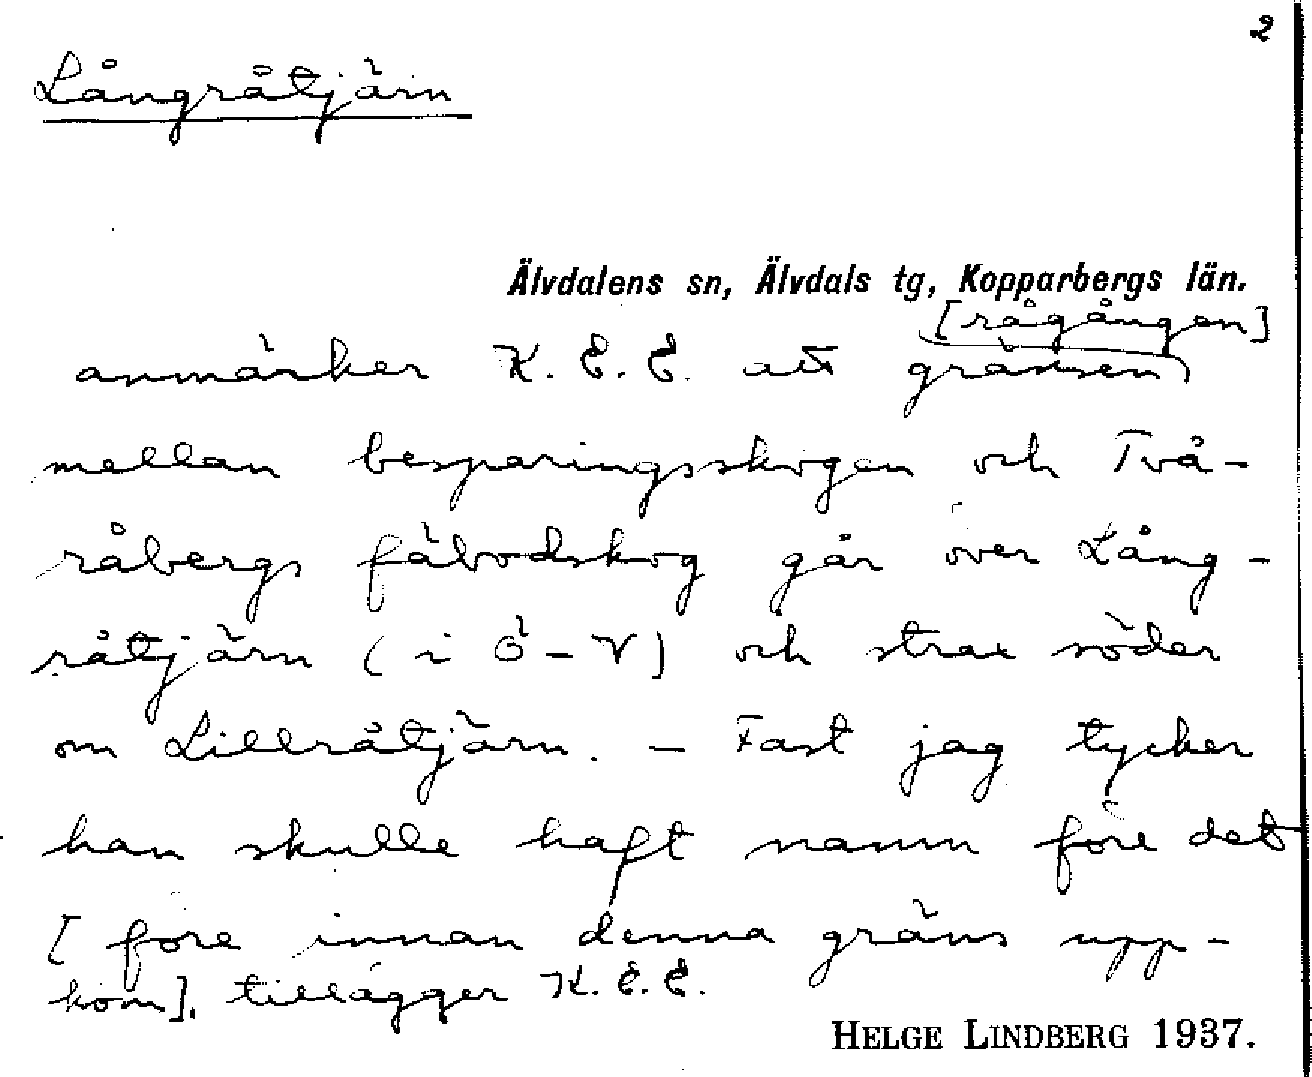 2
Långråtjärn
Älvdalens sn, Älvdals tg, Kopparbergs län.
[rågången]
anmärker K. E. E. att gränsen
mellan besparingsskogen och Två-
råbergs fäbodskog går över Lång-
råtjärn (i Ö-V) och strax söder
om Lillråtjärn. - Fast jag tycker
han skulle haft namn före det
[före innan denna gräns upp-
kom], tillägger K. E. E.
HELGE LINDBERG 1937.